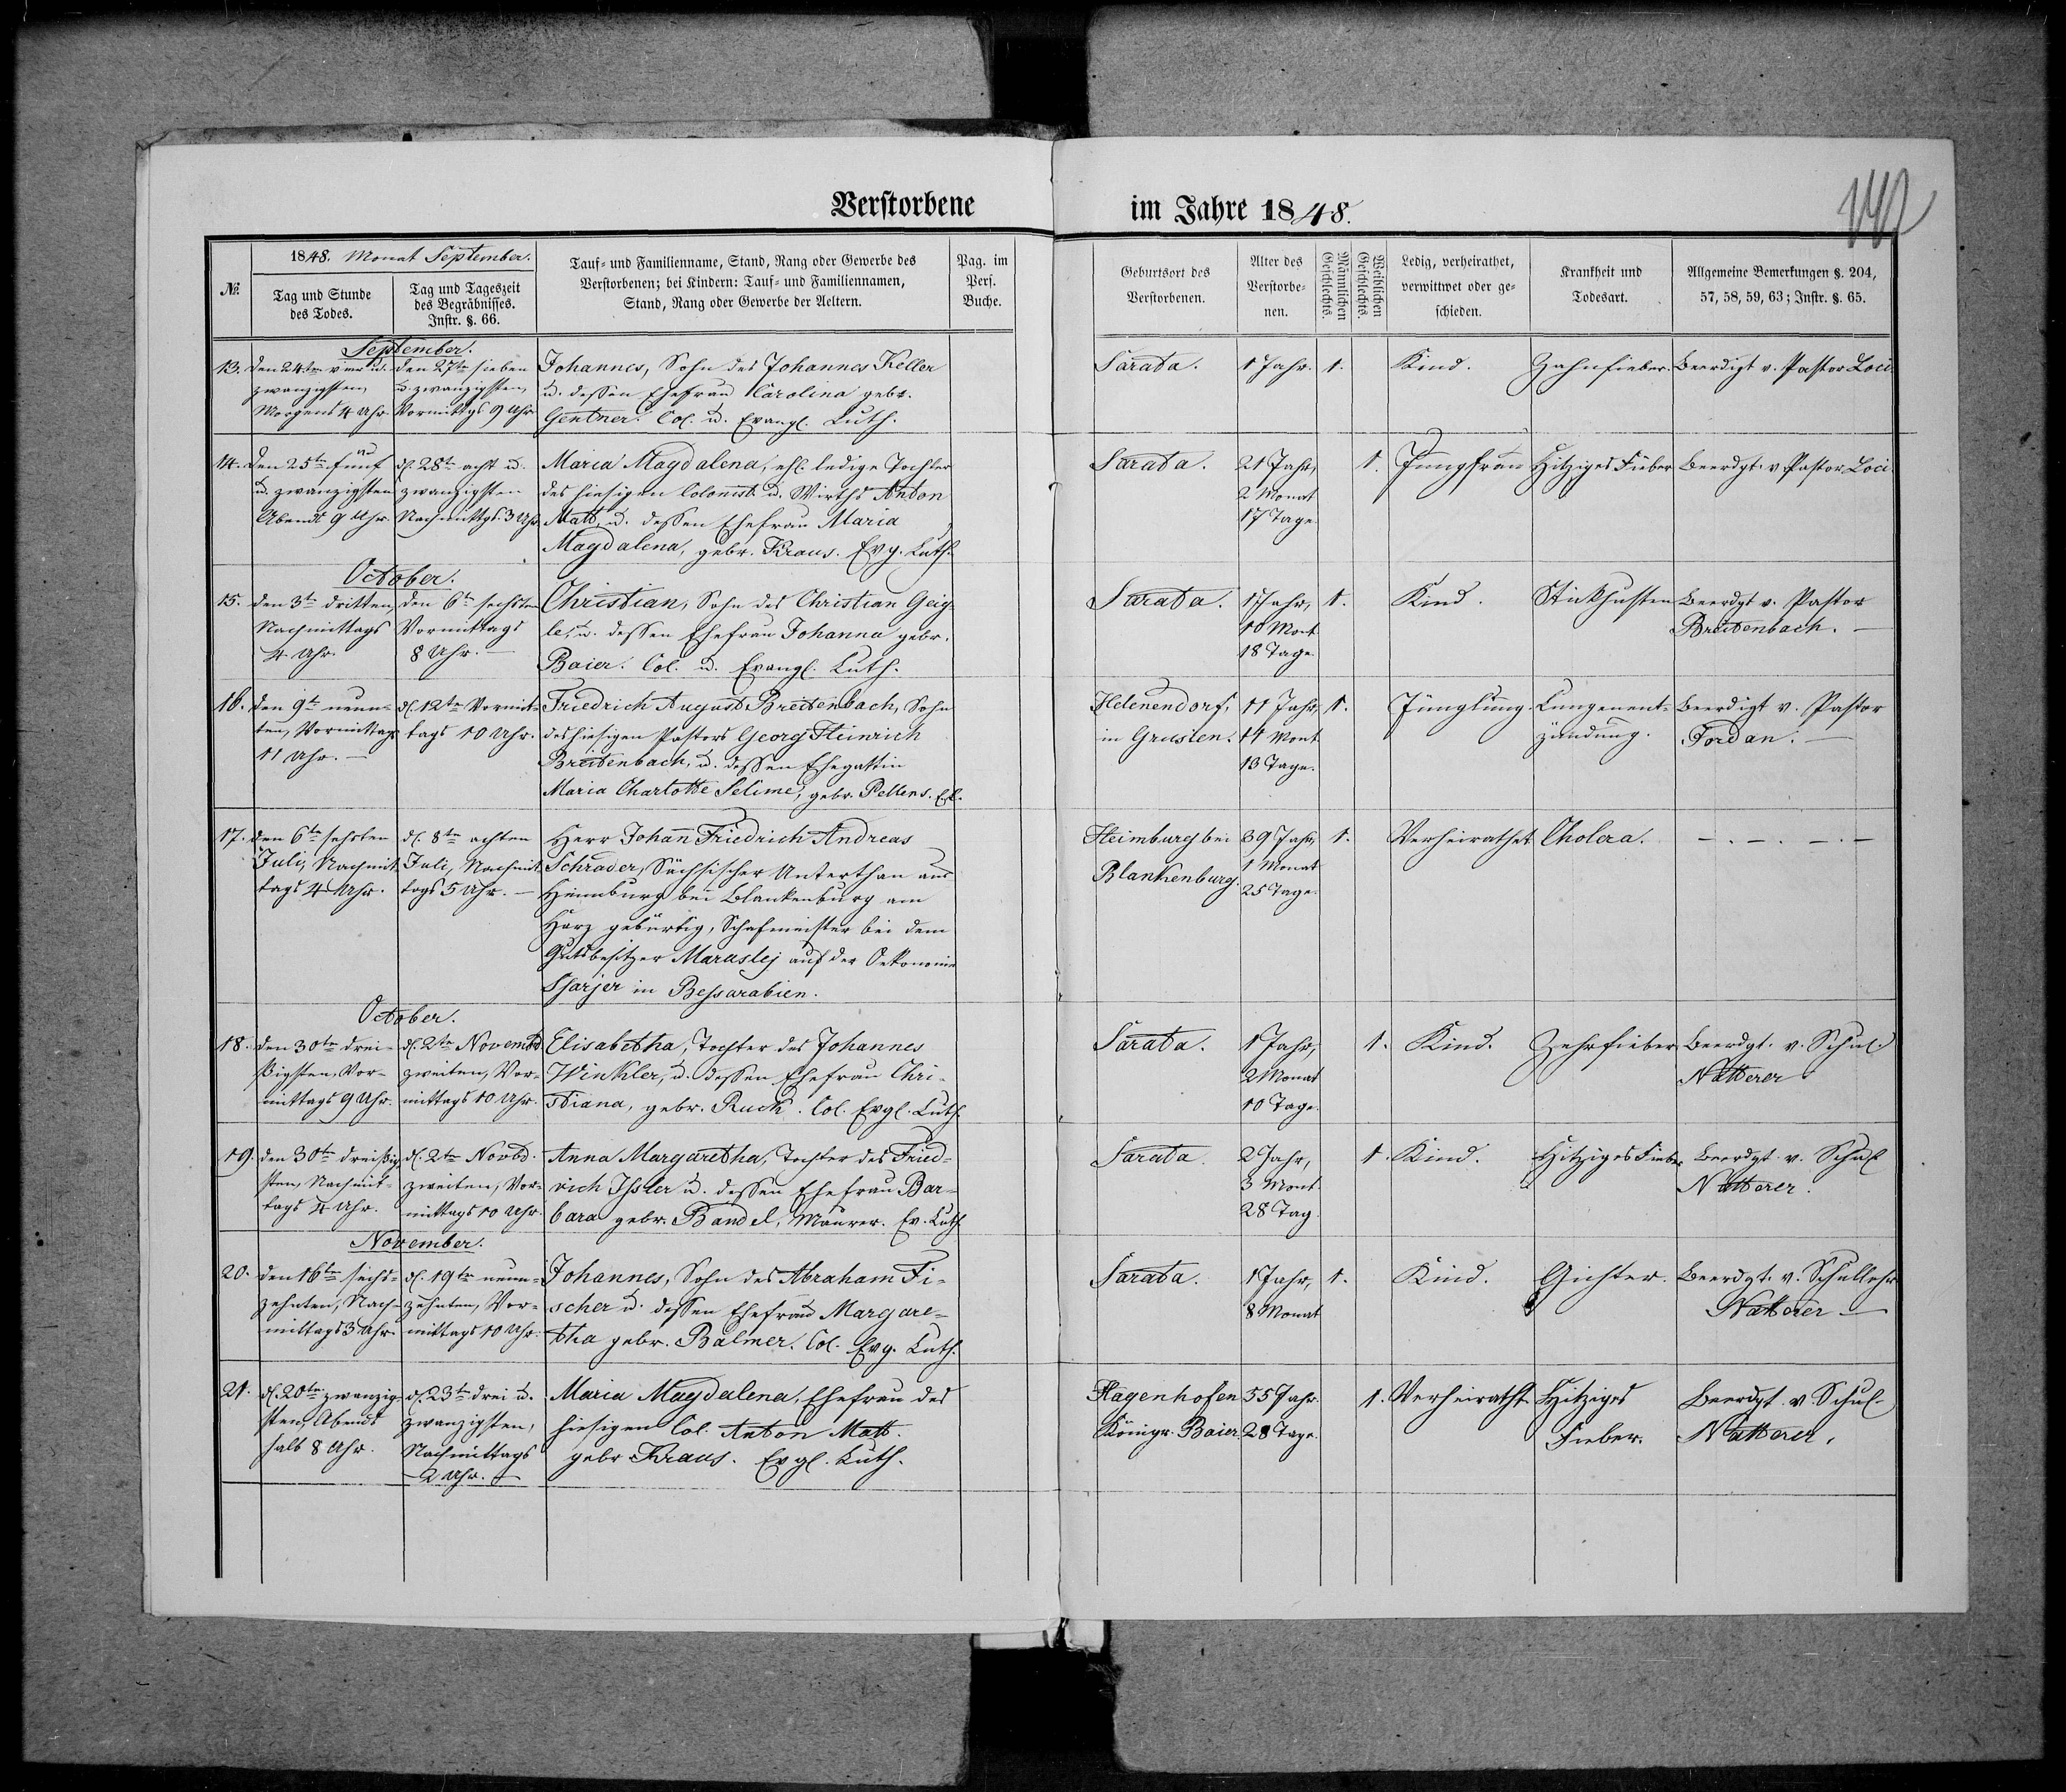 Verstorbene im Jahre 1848.
1848. Monat September.
№.
Tag und Stunde
des Todes.
Tag und Tageszeit
des Begräbnisses.
Instr. §. 66.
Tauf- und Familienname, Stand, Rang oder Gewerbe des
Verstorbenen; bei Kindern: Tauf- und Familiennamen,
Stand, Rang oder Gewerbe der Aeltern.
Pag. im
Pers.
Buche.
Geburtsort des
Verstorbenen.
Alter des
Verstorbe-
nen.
Männlichen
Geschlechts.
Weiblichen
Geschlechts.
Ledig, verheirathet,
verwittwet oder ge-
schieden.
Krankheit und
Todesart.
Allgemeine Bemerkungen §. 204,
57, 58, 59, 63; Instr. §. 65.
September.
13. den 24ten vier u.
zwanzigsten,
Morgens 4 Uhr.
den 27te sieben
u. zwanzigsten,
Vormittgs 9 Uhr
Johannes, Sohn des Johannes Keller
u. dessen Ehefrau Carolina gebr.
Gentner. Col. u. Evangl. Luth.
Sarata. 1 Jahr. 1. Kind. Zahnfieber. Beerdigt v. Pastor Loci.
14. den 25te fünf
u. zwanzigsten
Abends 9 Uhr.
d. 28te acht u.
zwanzigsten
Nachmittgs. 3 Uhr
Maria Magdalena, ehl. ledige Tochter
des hiesigen Colonist u. Wirths Anton
Matt u. dessen Ehefrau Maria
Magdalena, gebr. Kraus. Evg. Luth.
Sarata. 21 Jahr,
2 Monat
17 Tage.
1. Jungfrau Hitziges Fieber Beerdgt. v. Pastor Loci.
October.
15. den 3te dritten,
Nachmittags
4 Uhr.
den 6te sechsten
Vormittags
8 Uhr.
Christian, Sohn des Christian Geig-
le, u. dessen Ehefrau Johanna gebr.
Baier. Col. u. Evangl. Luth.
Sarata. 1 Jahr,
10 Mont
18 Tage.
1. Kind. Stickhusten Beerdgt v. Pastor
Breitenbach.
16. den 9te neun-
ten, Vormittags
11 Uhr.
d. 12te Vormit-
tags 10 Uhr.
Friedrich August Breitenbach, Sohn
des hiesigen Pastors Georg Heinrich
Breitenbach, u. dessen Ehegattin
Maria Charlotte Selime, gebr. Pellens.
Helenendorf,
in Grusien.
11 Jahr,
14 Mont
13 Tage.
1. Jüngling. Lungenent-
zündung.
Beerdigt v. Pastor
Fordan.
17. den 6te sechsten
Juli, Nachmit-
tags 4 Uhr.
d. 8te achten
Juli, Nachmit-
tags 5 Uhr.
Herr Johann Friedrich Andreas
Schrader, Sächsischer Unterthan aus
Heimburg bei Blankenburg am
Harz gebürtig, Schafmeister bei dem
Gutsbesitzer Maraslej auf der Oekonomie
Scharjer in Bessarabien.
Heimburg bei
Blankenburg.
39 Jahr,
1 Monat
25 Tage.
1. Verheirathet Cholera.
October.
18. den 30te drei-
ßigsten, Vor-
mittags 9 Uhr.
d. 2te Novembr
zweiten, Vor-
mittags 10 Uhr.
Elisabetha, Tochter des Johannes
Winkler, u. dessen Ehefrau Chri-
stiana, gebr. Ruck. Col. Evgl. Luth.
Sarata. 1 Jahr,
2 Monat
10 Tage.
1. Kind. Zehrfieber Beerdgt. v. Schul.
Natterer
19. den 30te dreißig-
sten, Nachmit-
tags 4 Uhr.
d. 2te Novbr.
zweiten, Vor-
mittags 10 Uhr.
Anna Margaretha, Tochter des Fried-
rich Issler u. dessen Ehefrau Bar-
bara gebr. Bandel, Maurer. Ev. Luth
Sarata. 2 Jahr,
3 Mont
28 Tag.
1. Kind. Hitziges Fieber Beerdgt. v. Schul
Natterer.
November.
20. den 16te sechs-
zehnten, Nach-
mittags 3 Uhr.
d. 19te neun-
zehnten, Vor-
mittags 10 Uhr.
Johannes, Sohn des Abraham Fi-
scher u. dessen Ehefrau Margare-
tha gebr. Balmer. Col. Evg. Luth.
Sarata. 1 Jahr,
8 Monat
1. Kind. Gichter. Beerdgt. v. Schullehr
Natterer
21. d. 20te zwanzig-
sten, Abends
halb 8 Uhr.
d. 23te drei u.
zwanzigsten,
Nachmittags
2 Uhr.
Maria Magdalena, Ehefrau des
hiesigen Col. Anton Matt.
gebr Kraus. Evgl. Luth.
Hagenhofen
Königr. Baier.
55 Jahr.
28 Tage.
1. Verheirathet Hitziges
Fieber.
Beerdgt v. Schul-
Natterer.